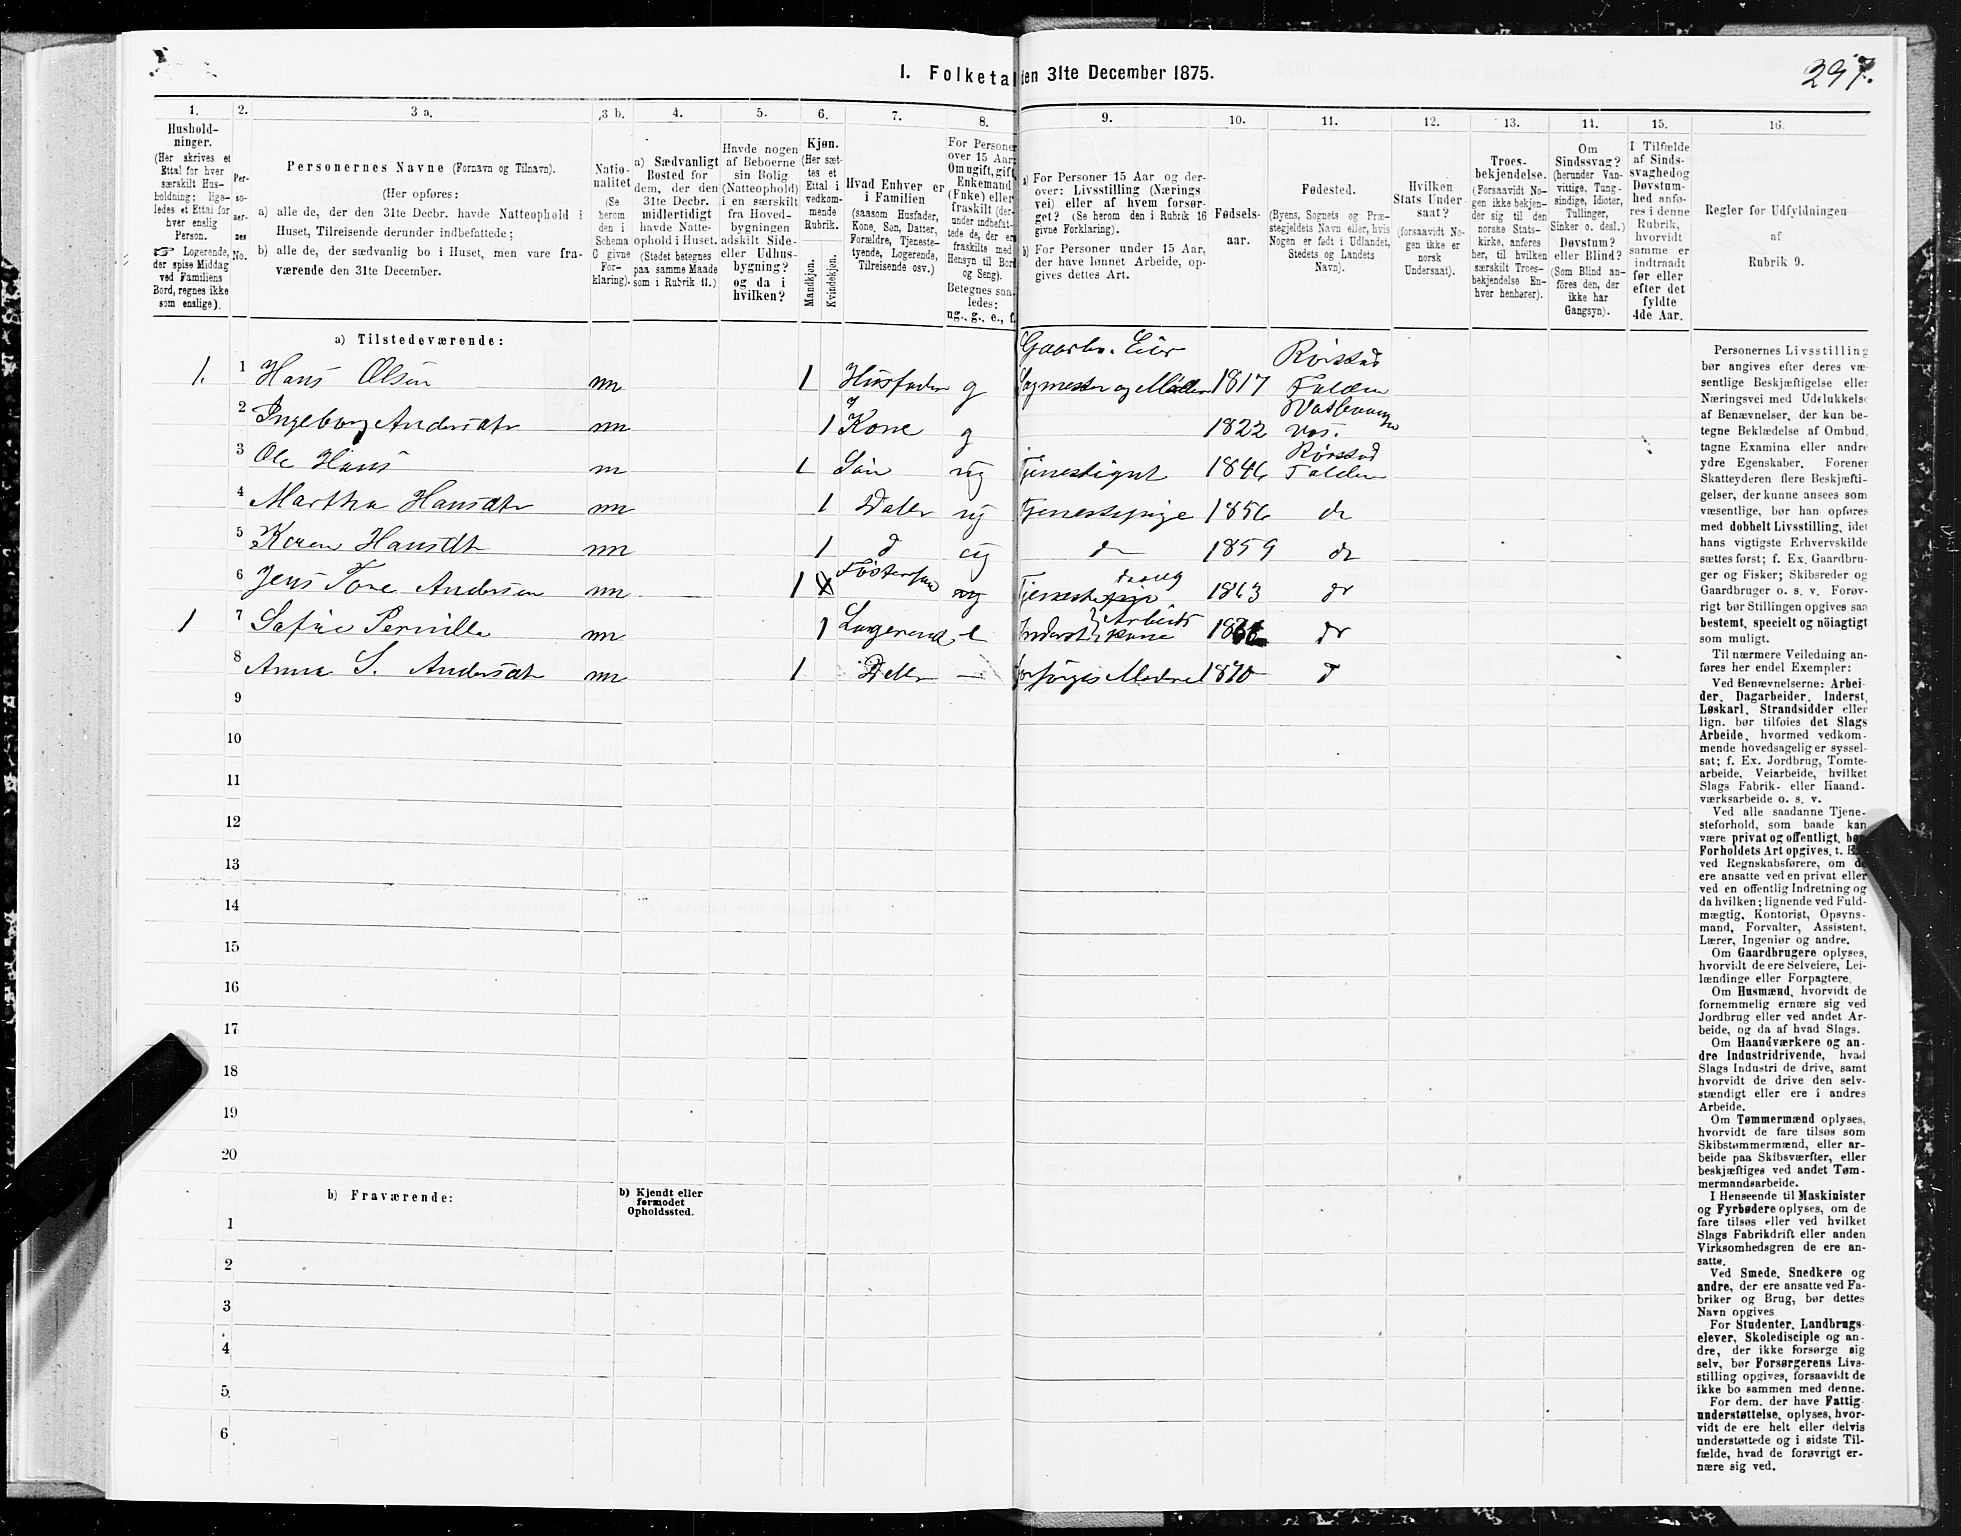 1. Folketal den 31te December 1875.
297.
1.
2.
3 a.
3 b.
4.
5.
6.
7.
8.
9.
10.
11.
12.
13.
14.
15.
16.
Hushold-
ninger.
(Her skrives et
Ettal for hver
særskilt Hus-
holdning; lige-
ledes et Ettal for
hver enslig
Person.
☞ Logerende,
der spise Middag
ved Familiens
Bord, regnes ikke
som enslige).
Per-
so-
ner-
nes
No.
Personernes Navne (Fornavn og Tilnavn).
(Her opføres:
a) alle de, der den 31te Decbr. havde Natteophold i
Huset, Tilreisende derunder indbefattede;
b) alle de, der sædvanlig bo i Huset, men vare fra-
værende den 31te December.
Natio-
nalitet
(Se
herom
den i
Schema
C givne
For-
klaring).
a) Sædvanligt
Bosted for
dem, der den
31te Decbr.
midlertidigt
havde Natte-
ophold i Huset.
(Stedet betegnes
paa samme Maade
som i Rubrik 11.)
Havde nogen
af Beboerne
sin Bolig
(Natteophold)
i en særskilt
fra Hoved-
bygningen
adskilt Side-
eller Udhus-
bygning?
og da i
hvilken?
Kjøn.
(Her sæt-
tes et
Ettal i
vedkom-
mende
Rubrik.
Mandkjøn.
Kvindekjøn.
Hvad Enhver er
i Familien
(saasom Husfader,
Kone, Søn, Datter,
Forældre, Tjeneste-
tyende, Logerende,
Tilreisende osv.)
For Personer
over 15 Aar:
Om ugift, gift,
Enkemand
(Enke) eller
fraskilt (der-
under indbefat-
tede de, der er
fraskilte med
Hensyn til Bord
og Seng).
Betegnes saa-
ledes:
ug., g., e., f.
a) For Personer 15 Aar og der-
over: Livsstilling (Nærings-
vei) eller af hvem forsør-
get? (Se herom den i Rubrik 16
givne Forklaring).
b) For Personer under 15 Aar,
der have lønnet Arbeide, op-
gives dettes Art.
Fødsels-
aar.
Fødested.
(Byens, Sognets og Præ-
stegjeldets Navn eller, hvis
Nogen er født i Udlandet,
Stedets og Landets
Navn).
Hvilken
Stats Under-
saat?
(forsaavidt No-
gen ikke er
norsk
Undersaat).
Troes-
bekjendelse.
(Forsaavidt No-
gen ikke bekjen-
der sig til den
norske Stats-
kirke, anføres
her, til hvilken
særskilt Troes-
bekjendelse En-
hver henhører).
Om
Sindssvag?
(herunder Van-
vittige, Tung-
sindige, Idioter,
Tullinger,
Sinker o. desl.)
Døvstum?
eller Blind?
(Som Blind an-
føres den, der
ikke har
Gangsyn).
I Tilfælde
af Sinds-
svaghed og
Døvstum-
hed anfø-
res i denne
Rubrik,
hvorvidt
samme er
indtraadt
før eller
efter det
fyldte
4de Aar.
Regler for Udfyldningen
af
Rubrik 9.
a) Tilstedeværende:
Gaardbr. Eier Rörstad
1. 1 Hans Olsen nn 1 Husfader g Sagmester og Møller 1817 Folden
2 Ingeborg Andersdtr nn 1 Kone g 1822
3 Ole Hans n 1 Søn ug Tjenestegut 1846 Rörstad Folden
4 Martha Hansdtr nn 1 Datter ug Tjenestepige 1856 do
5 Karen Hansdt nn 1 d ug do 1859 do
6 Jens Tore Andersen nn 1 Fostersøn ug Tjeneste 1863 do
1 7 Safie Pernille nn 1 Logerend e Inderst Arbeids Kone do
8 Anna S. Andersdt nn 1 Datter — forsørges Moderen 1870 d
9
10
11
12
13
14
15
16
17
18
19
20
b) Fraværende:
b) Kjendt eller
formodet
Opholdssted.
1
2
3
4
5
6
Personernes Livsstilling
bør angives efter deres væ-
sentlige Beskjæftigelse eller
Næringsvei med Udelukkelse
af Benævnelser, der kun be-
tegne Beklædelse af Ombud,
tagne Examina eller andre
ydre Egenskaber. Forener
Skatteyderen flere Beskjæfti-
gelser, der kunne ansees som
væsentlige, bør han opføres
med dobbelt Livsstilling, idet
hans vigtigste Erhvervskilde
sættes først; f. Ex. Gaardbru-
ger og Fisker; Skibsreder og
Gaardbruger o. s. v. Forøv-
rigt bør Stillingen opgives saa
bestemt, specielt og nöiagtigt
som muligt.
Til nærmere Veiledning an-
føres her endel Exempler:
Ved Benævnelserne: Arbei-
der, Dagarbeider, Inderst,
Løskarl, Strandsidder eller
lign. bør tilføies det Slags
Arbeide, hvormed vedkom-
mende hovedsagelig er syssel-
sat; f. Ex. Jordbrug, Tomte-
arbeide, Veiarbeide, hvilket
Slags Fabrik- eller Haand-
værksarbeide o. s. v.
Ved alle saadanne Tjene-
steforhold, som baade kan
være privat og offentligt, bør
Forholdets Art opgives, t. Ex.
ved Regnskabsførere, om de
ere ansatte ved en privat eller
ved en offentlig Indretning og
da hvilken; lignende ved Fuld-
mægtig, Kontorist, Opsyns-
mand, Forvalter, Assistent,
Lærer, Ingeniør og andre.
Om Gaardbrugere oplyses,
hvorvidt de ere Selveiere, Lei-
lændinge eller Forpagtere.
Om Husmænd, hvorvidt de
fornemmelig ernære sig ved
Jordbrug eller ved andet Ar-
beide, og da af hvad Slags.
Om Haandværkere og an-
dre Industridrivende, hvad
Slags Industri de drive, samt
hvorvidt de drive den selv-
stændigt eller ere i andres
Arbeide.
Om Tømmermænd oplyses,
hvorvidt de fare tilsøs som
Skibstømmermænd, eller ar-
beide paa Skibsværfter, eller
beskjæftiges ved andet Tøm-
mermandsarbeide.
I Henseende til Maskinister
og Fyrbødere oplyses, om de
fare tilsøs eller ved hvilket
Slags Fabrikdrift eller anden
Virksomhedsgren de ere an-
satte.
Ved Smede, Snedkere og
andre, der ere ansatte ved Fa-
briker og Brug, bør dettes
Navn opgives
For Studenter, Landbrugs-
elever, Skoledisciple og an-
dre, der ikke forsørge sig
selv, bør Forsørgerens Livs-
stilling opgives, forsaavidt de
ikke bo sammen med denne.
For dem, der have Fattig-
understøttelse, oplyses, hvor-
vidt de ere helt eller delvis
understøttede og i sidste Til-
fælde, hvad de forøvrigt er-
nære sig ved.